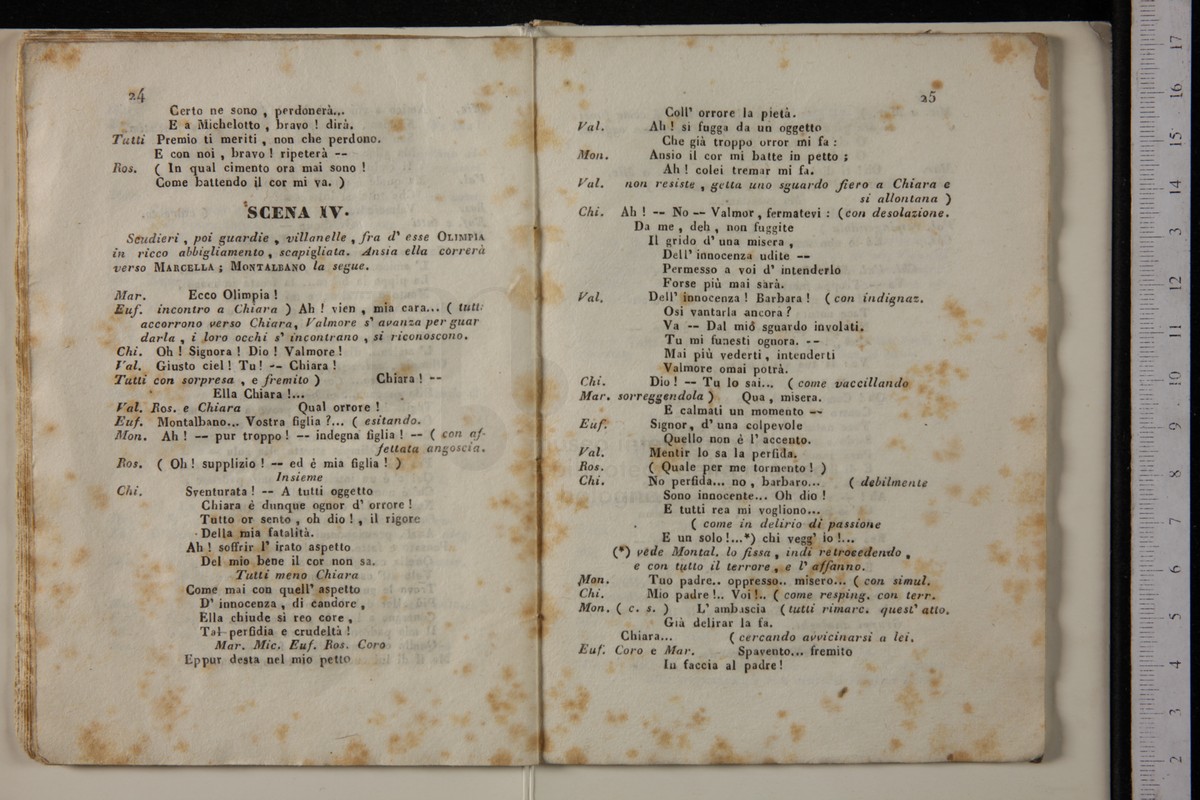 24
Certo ne sono , perdonerà...
E a Michelotto , bravo ! dirà.
Tutti Premio ti meriti , non che perdono.
E con noi , bravo ! ripeterà --
Ros. ( In qual cimento ora mai sono !
Come battendo il cor mi va. )
SCENA IV.
Scudieri , poi guardie , villanelle , fra d' esse OLIMPIA
in ricco abbigliamento , scapigliata. Ansia ella correrà
verso MARCELLA ; MONTALBANO la segue.
Mar. Ecco Olimpia !
Euf. incontro a Chiara ) Ah ! vien , mia cara... ( tutti
accorrono verso Chiara, Valmore s' avanza per guar
darla , i loro occhi s' incontrano , si riconoscono.
Chi. Oh ! Signora ! Dio ! Valmore !
Val. Giusto ciel ! Tu ! -- Chiara !
Tutti con sorpresa , e fremito ) Chiara ! --
Ella Chiara !...
Val. Ros. e Chiara Qual orrore !
Euf. Montalbano... Vostra figlia ?... ( esitando.
Mon. Ah ! — pur troppo ! — indegna figlia ! — ( con af-
fettata angoscia.
Ros. ( Oh ! supplizio ! — ed é mia figlia ! )
Insieme
Chi. Sventurata ! -- A tutti oggetto
Chiara é dunque ognor d' orrore !
Tutto or sento , oh dio ! , il rigore
Della mia fatalità.
Ah ! soffrir l' irato aspetto
Del mio bene il cor non sa.
Tutti meno Chiara
Come mai con quell' aspetto
D' innocenza , di candore ,
Ella chiude si reo core ,
Tal perfidia e crudeltà !
Mar. Mic. Euf. Ros. Coro
Eppur desta nel mio petto
25
Coll' orrore la pietà.
Val. Ah ! si fugga da un oggetto
Che già troppo orror mi fa :
Mon. Ansio il cor mi batte in petto ;
Ah ! colei tremar mi fa.
Val. non resiste , getta uno sguardo fiero a Chiara e
si allontana )
Chi. Ah ! -- No -- Valmor , fermatevi : (con desolazione.
Da me , deh , non fuggite
Il grido d' una misera ,
Dell' innocenza udite --
Permesso a voi d' intenderlo
Forse più mai sarà.
Val. Dell' innocenza ! Barbara ! ( con indignaz.
Osi vantarla ancora ?
Va -- Dal mio sguardo involati.
Tu mi funesti ognora. --
Mai più vederti , intenderti
Valmore omai potrà.
Chi. Dio ! — Tu lo sai... ( come vaccillando
Mar. sorreggendola ) Qua , misera.
E calmati un momento --
Euf. Signor, d' una colpevole
Quello non é l' accento.
Val. Mentir lo sa la perfida.
Ros. ( Quale per me tormento ! )
Chi. No perfida... no , barbaro... ( debilmente
Sono innocente... Oh dio !
E tutti rea mi vogliono...
( come in delirio di passione
E un solo !...*) chi vegg' io !...
(*) vede Montal. lo fissa , indi retrocedendo ,
e con tutto il terrore , e l' affanno.
Mon. Tuo padre.. oppresso.. misero... ( con simul.
Chi. Mio padre !.. Voi !.. ( come resping. con terr.
Mon. ( c. s. ) L' ambascia ( tutti rimarc. quest' atto.
Già delirar la fa.
Chiara... ( cercando avvicinarsi a lei.
Euf. Coro e Mar. Spavento... fremito
In faccia al padre !
2 3 4 5 6 7 8 9 10 11 12 13 14 15 16 17